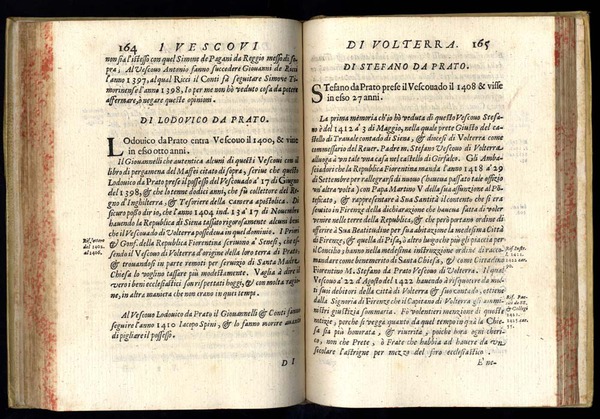 164 I VESCOVI
non sia l'istesso con quel Simone de Pagani da Reggio messo di sopra; Al Vescovo Antonio fanno succedere Giovanni de Ricci
l'anno 1397, al qual Ricci il Conti fà seguitare Simone Tu-
morinense l'anno 1398, Io per me non hò veduto cosa da potere
affermare, ò negare queste opinioni.
DI LODOVICO DA PRATO.
LOdovico da Prato entra Vescovo il 1400, & vive
in esso otto anni.
Il Giovannelli che autentica alcuni di questi Vescovi con il
libro di pergamena del Maffei citato di sopra, scrive che questo
Lodovico da Prato prese il possesso del Vescovado à 17 di Giugno
del 1398, & che lo tenne dodici anni, che fù collettore del Re-
gno d'Inghilterra, & Tesoriere della camera apostolica. Di
sicuro posso dir io, che l'anno 1404 ind. 13 à 17 di Novembre
havendo la Republica di Siena tassato rigorosamente alcuni beni
che il Vescovado di Volterra possedeva in quel dominio. I Priori
& Gonf. della Republica Fiorentina scrivono a' Senesi, che es-
sendo il Vescovo di Volterra d'origine della loro terra di Prato,
& trovandosi in parte remoti per servizio di Santa Madre
Chiesa lo voglino tassare più modestamente. Vaglia à dire il
vero i beni ecclesiastici son rispettati hoggi, & con molta ragio-
ne, in altra maniera che non erano in quei tempi.
Al Vescovo Lodovico da Prato il Giovannelli & Conti fanno
seguire l'anno 1410 Iacopo Spini, & lo fanno morire avanti
di pigliare il possesso.
D I
DI VOLTERRA. 165
DI STEFANO DA PRATO.
STefano da Prato prese il Vescovado il 1408 & visse
in esso 27 anni.
La prima memoria ch'io hò veduta di questo Vescovo Stefa-
no è del 1412 à 3 di Maggio, nella quale prete Giusto del ca-
stello di Tranale Cittadino Senese, & diocesi di Volterra come
commessario del Rever. Padre m. Stefano Vescovo di Volterra
alluoga à un tale una casa nel castello di Girfalco. Gli Amba-
sciadori che la Republica Fiorentina manda l'anno 1418 à 29
di Settembre per rallegrarsi di nuovo (havendo passato tale uffizio
un'altra volta) con Papa Martino V della sua assunzione al Pon-
tificato, & rappresentare à Sua Santità il contento che si era
sentito in Firenze della dichiarazione che haveva fatta di voler
venire nelle terre della Republica, & che però portano ordine di
offerire à Sua Beatitudine per sua abitazione la medesima Città
di Firenze, & quella di Pisa, ò altro luogo che più gli piaccia per
il Concilio; hanno nella medesima instruzione ordine di racco-
mandare come benemerito di Santa Chiesa, & come Cittadino
Fiorentino M. Stefano da Prato Vescovo di Volterra. Il qual
Vescovo a' 22 d'Agosto del 1422 havendo à riscuotere da mol-
ti suoi debitori della città di Volterra, & suo contado, ottiene
dalla Signoria di Firenze che il Capitano di Volterra gli ammi-
nistri giustizia sommaria. Fo volentieri menzione di queste
notizie, perche si vegga quanto da quel tempo in quà la Chie-
sa sia più honorata, & riverita, poiche horà ogni cheri-
co, non che Prete, ò Frate che habbia ad havere da un
secolare l'astrigne per mezzo del giro ecclesiastico.
E' ne-